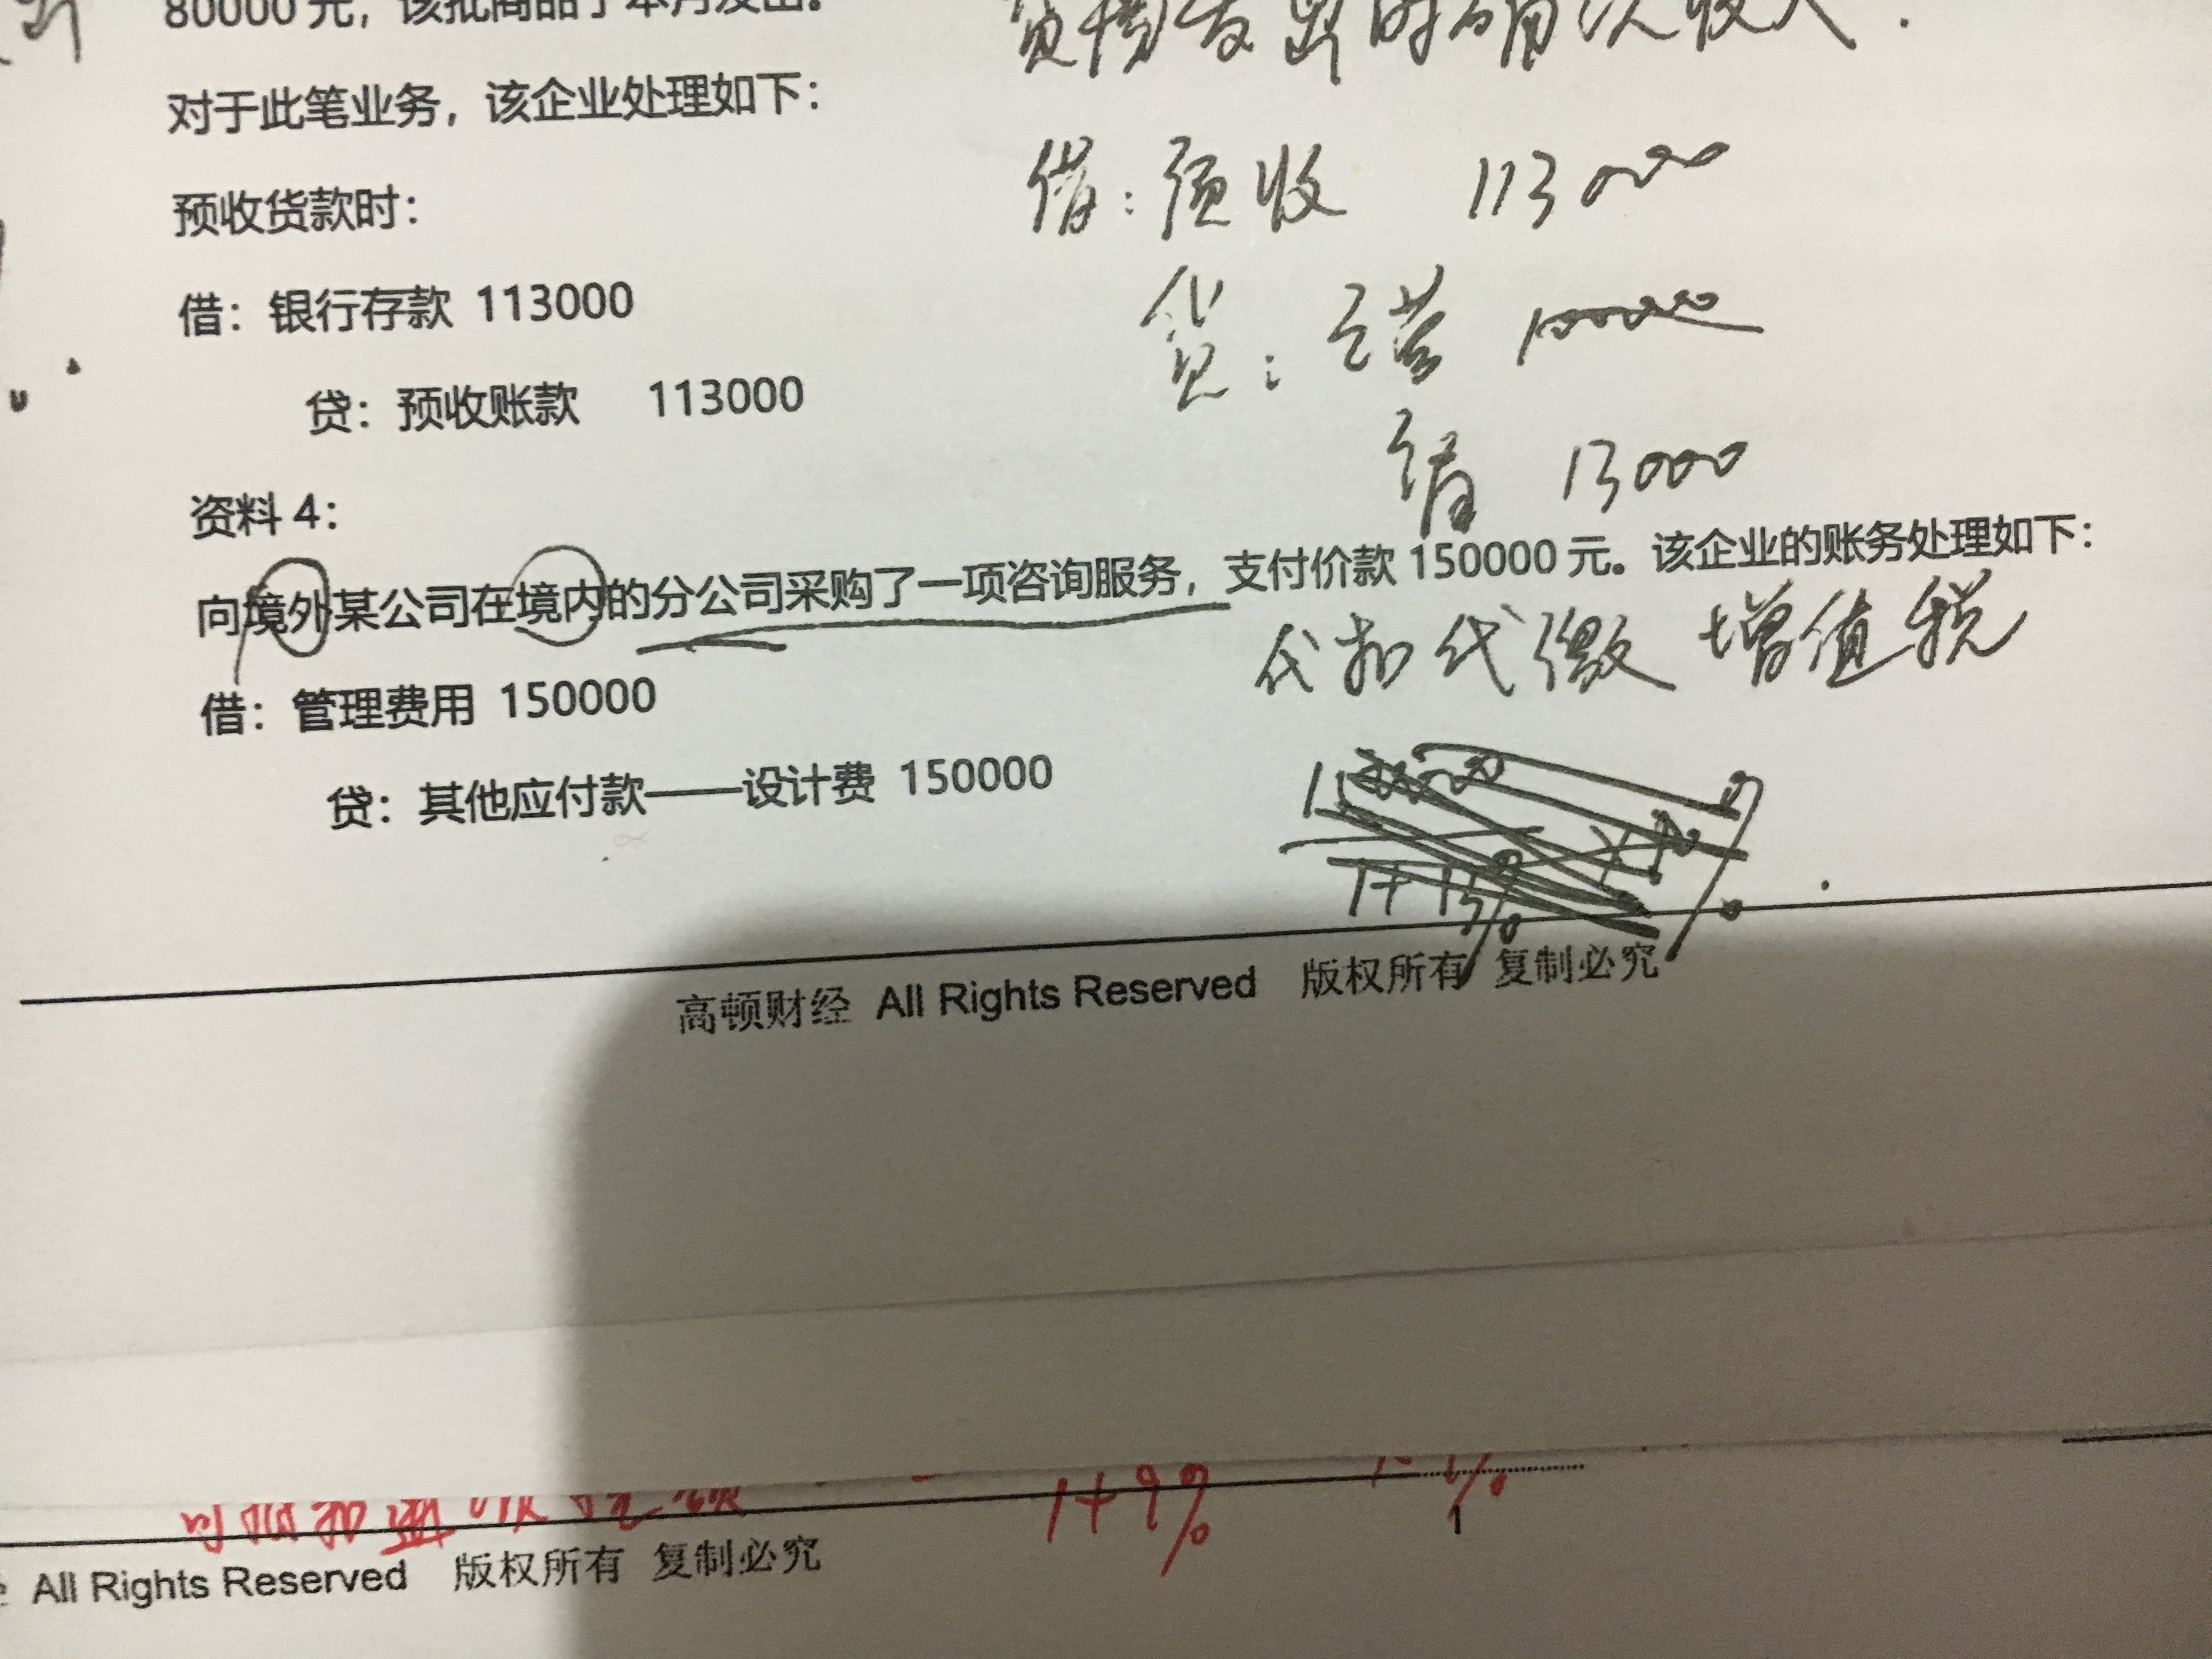 80000元，该批商品于本月发出。
货物发出时确认收入.
对于此笔业务，该企业处理如下：
预收货款时：
借：预收 113000
借：银行存款 113000
贷：主营 100000
贷：预收账款 113000
销 13000
资料 4：
向境外某公司在境内的分公司采购了一项咨询服务，支付价款 150000 元。该企业的账务处理如下：
代扣代缴 增值税
借：管理费用 150000
贷：其他应付款——设计费 150000
高顿财经 All Rights Reserved 版权所有 复制必究
1+9%
1
All Rights Reserved 版权所有 复制必究